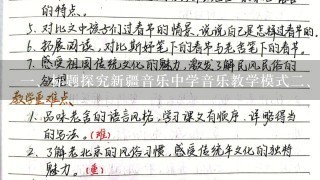 的特点。
5. 对比文中孩子们过春节的情景,说说自己是怎样过春节的。
6. 拓展阅读,对比斯妤笔下的春节与老舍笔下的春节。
7. 感受祖国传统文化的魅力,激发了解民风民俗的
一、课题探究新疆音乐中学音乐教学模式二、
教学重难点
1. 品味老舍的语言风格,学习课文有顺序、详略得当
的写法。(难)
2. 了解老北京的风俗习惯,感受传统年文化的独特
魅力。(重)